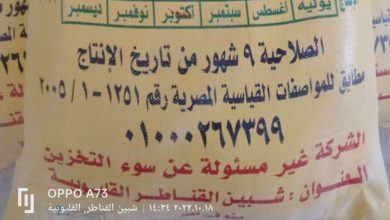 يوليه أغسطس سبتمبر أكتوبر نوفمبر ديسمبر
الصلاحية ٩ شهور من تاريخ الإنتاج
مطابق للمواصفات القياسية المصرية رقم ١٢٥١-١ / ٢٠٠٥
٠١٠٠٠٢٦٧٣٩٩
الشركة غير مسئولة عن سوء التخزين
العنوان : شبين القناطر القليوبية
OPPO A73
شبين القناطر القليوبية | ١٤:٣٤ ٢٠٢٢.١٠.١٨